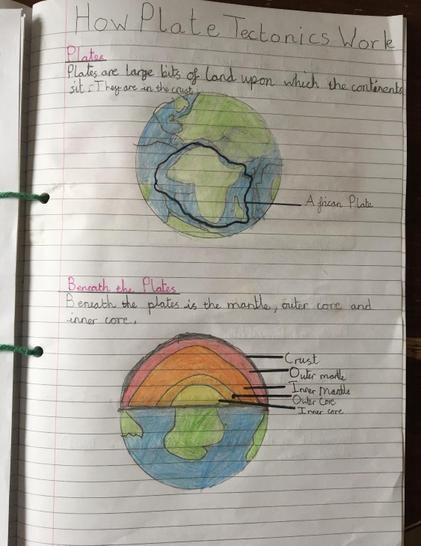 How Plate Tectonics Work
Plates
Plates are large bits of land upon which the continents
sit. They are in the crust.
African Plate
Beneath the Plates
Beneath the plates is the mantle, outer core and
inner core.
Crust
Outer mantle
Inner Mantle
Outer Core
Inner core